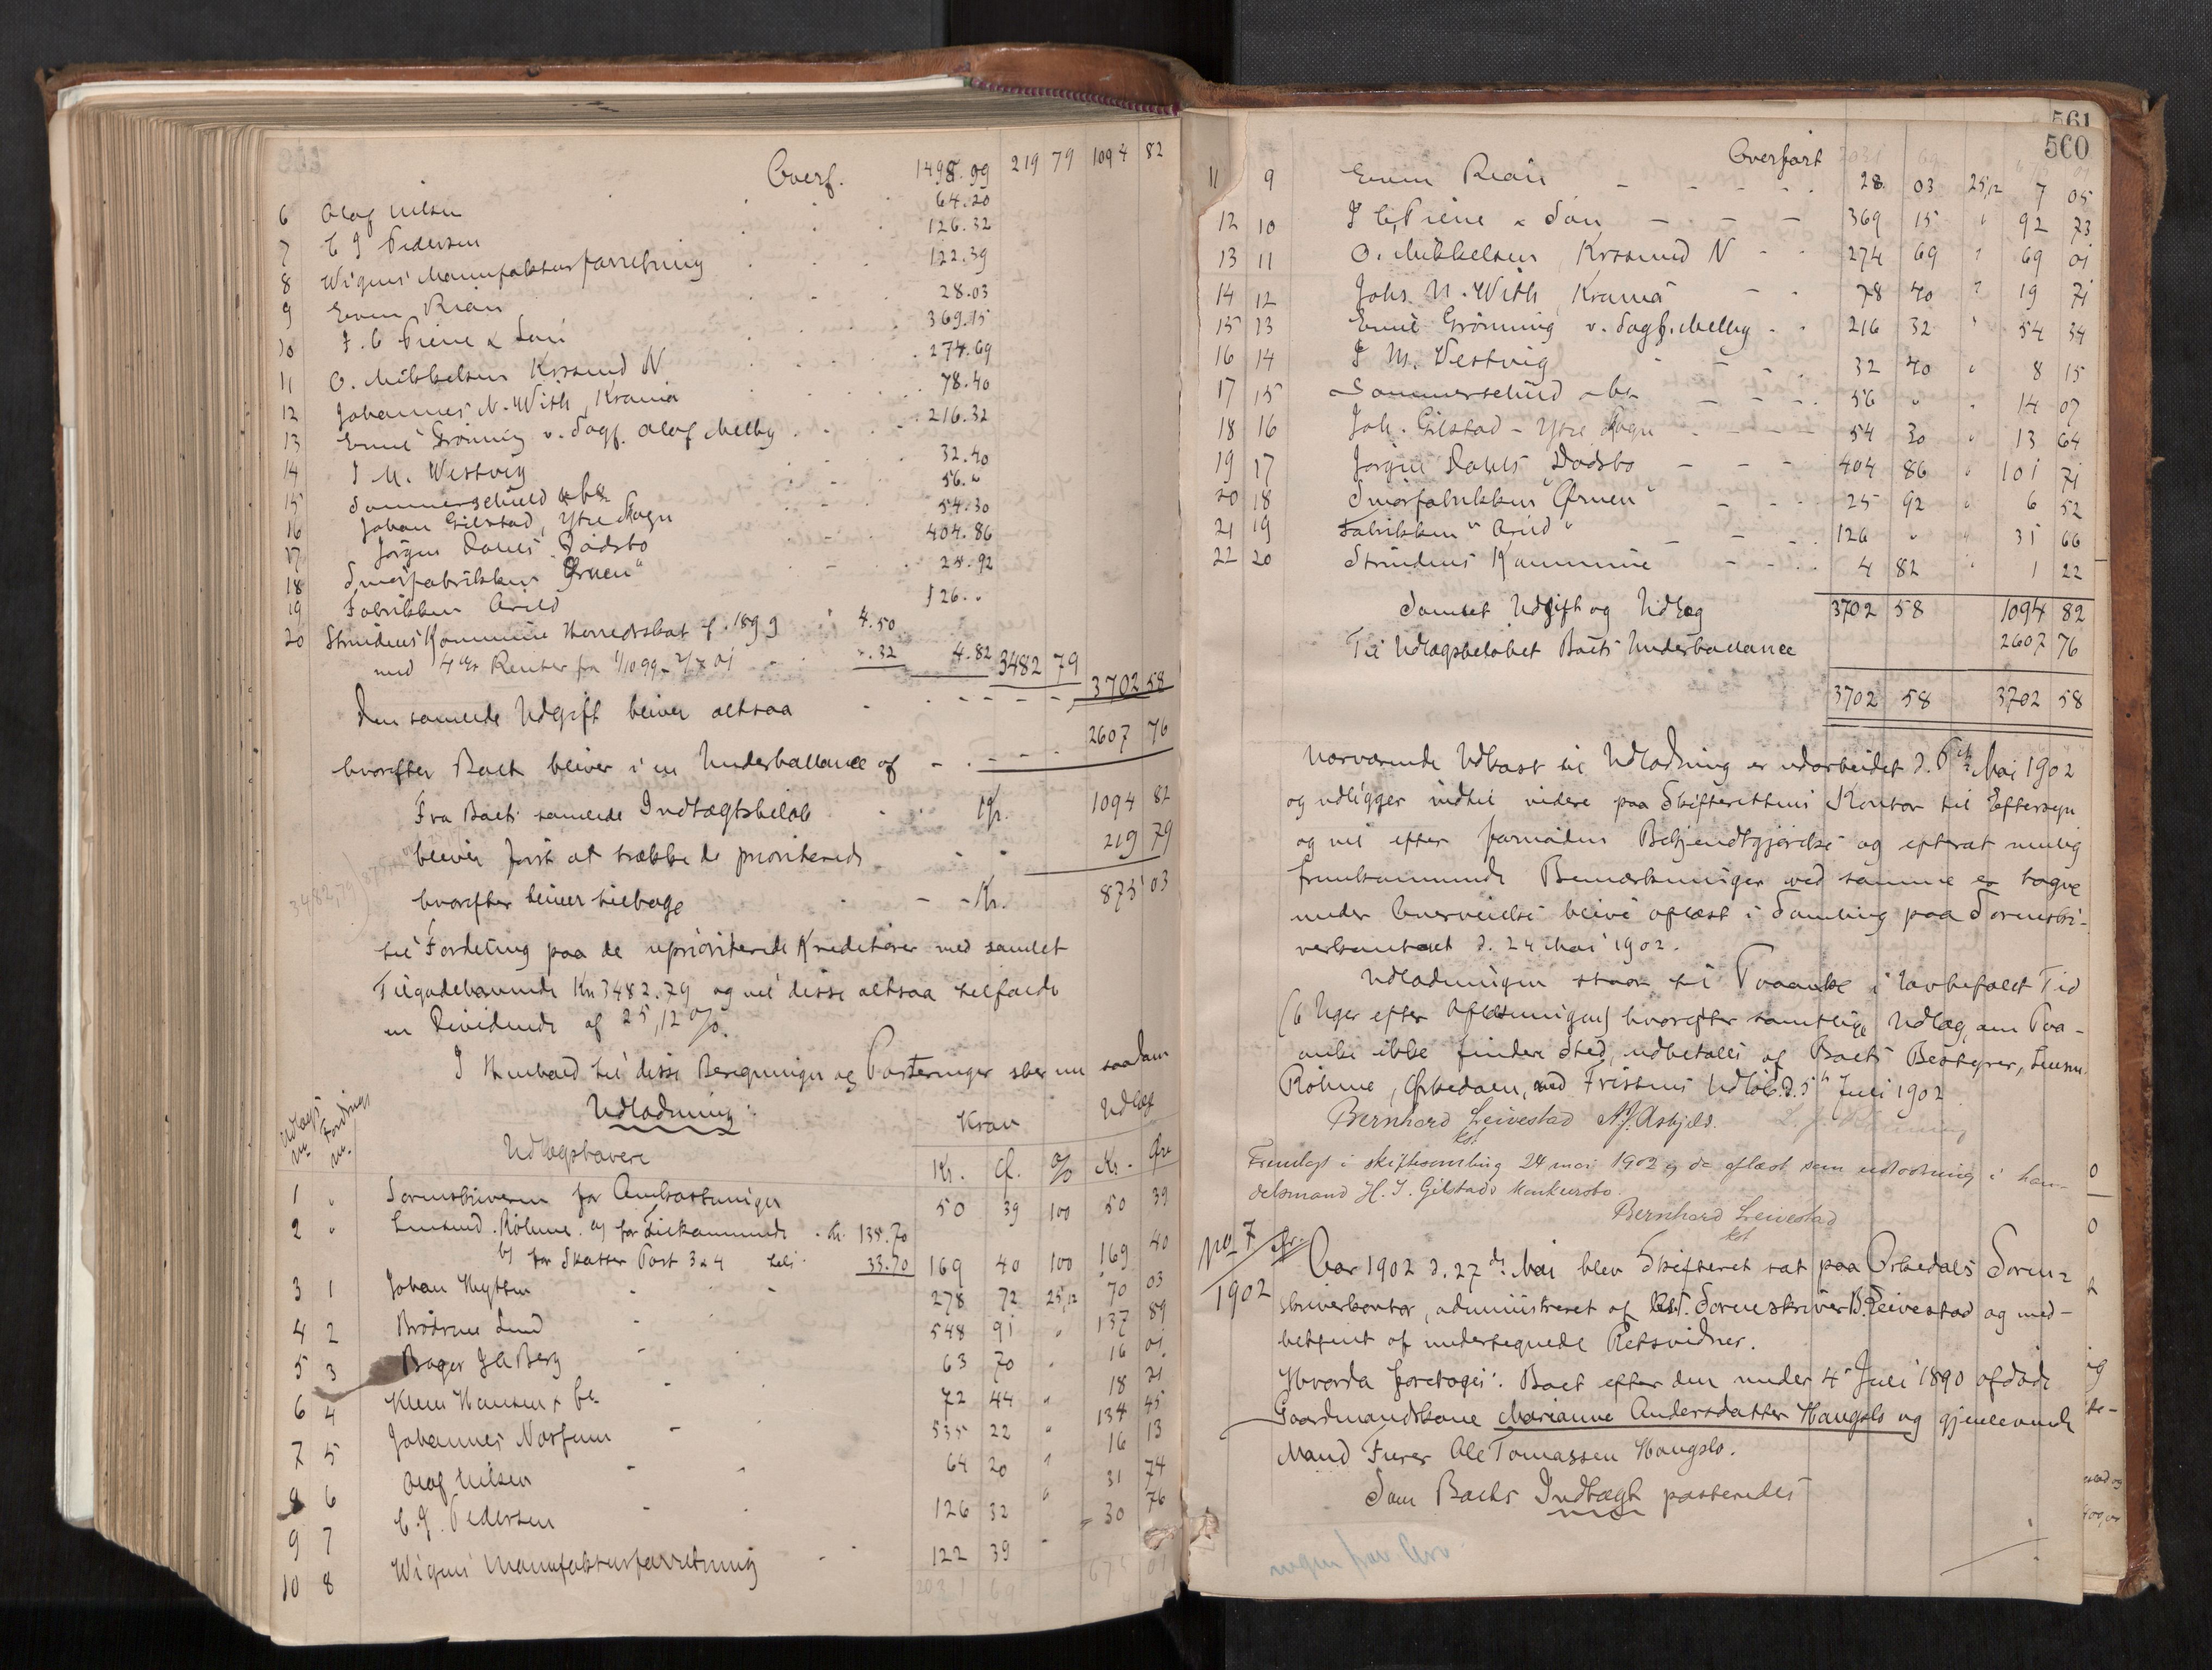 Overf. 1498.99 219 79 1094 82
6 Olaf Nilsen 64.20
7 C J Pedersen 126.32
8 Wigens Manufakturforretning 122.39
9 Even Rian 28.03
10 J. C Piene & Søn 369.15
11 O. Mikkelsen Krssund N 274.69
12 Johannes N. With, Krania 78.40
13 Emil Grönning v. Sagf. Olaf Melby 216.32
14 J M. Westvig 32.40
15 Sommerschield & Co 56. "
16 Johan Gilstad, Ytre Skogn 54.30
17 Jörgen Dahls Dödsbo 404.86
18 Smörfabrikken "Ørnen" 25.92
19 Fabrikken Arild 126. "
20 Strindens Kommune Herredsskat f. 1899 4.50
med 4% Renter fra 1/10 99 - 2/7 01 ".32 4.82 3482 79
Den samlede Udgift bliver altsaa 3702 58
hvorefter Boet bliver i en Underballance af 2607 76
Fra Boets samlede Indtægtsbeløb Kr. 1094 82
bliver först at trække de prioriterede 219 79
hvorefter bliver tilbage Kr. 875 03
til Fordeling paa de uprioriterede Kreditorer med samlet
Tilgodehavende Kr 3482.79 og vil disse altsaa tilfalde
en Dividende af 25,12 %.
I Henhold til disse Beregninger og Posteringer sker nu saadan
Udlodning:
Udlægs No. Fordrings No. Udlægshavere Krav Udlæg
Kr. Ø. % Kr. Øre
1 " Sorenskriveren for Omkostninger 50 39 100 50 39
2 " Lensmd. Röhme a) for Tilkommende Kr. 135.70
b) for Skatter Post 3 & 4 tils. 33.70 169 40 100 169 40
3 1 Johan Mythen 278 72 25,12 70 03
4 2 Brödrene Lund 548 91 " 137 89
5 3 Bager J A Berg 63 70 " 16 01
6 4 Klaus Hansen & Co 72 44 " 18 21
7 5 Johannes Norfum 535 22 " 134 45
8 6 Olaf Nilsen 64 20 " 16 13
9 7 C. J. Pedersen 126 32 " 31 74
10 8 Wigens Manufakturforretning 122 39 " 30 76
2031 69 675 01
561
560
Overført 2031 69
11 9 Even Rian 28 03 25,12 7 05
12 10 J C, Piene & Søn 369 15 " 92 73
13 11 O. Mikkelsen, Krssund N 274 69 " 69 01
14 12 Johs. N. With, Krania 78 40 " 19 71
15 13 Emil Grönning v. Sagf. Melby 216 32 " 54 34
16 14 J M. Vestvig 32 40 " 8 15
17 15 Sommerschield & Co 56 " " 14 07
18 16 Joh. Gilstad - Ytre Skogn 54 30 " 13 64
19 17 Jörgen Dahls Dödsbo 404 86 " 101 71
20 18 Smörfabrikken "Ørnen" 25 92 " 6 52
21 19 Fabrikken "Arild" 126 " " 31 66
22 20 Strindens Kommune 4 82 " 1 22
Samlet Udgift og Udlæg 3702 58 1094 82
Til Udlægsbeløbet Boets Underballance 2607 76
3702 58 3702 58
Nærværende Udkast til Udlodning er udarbeidet d. Mai 1902
og udligger indtil videre paa Skifterettens Kontor til Eftersyn
og vil efter forneden Bekjendtgjörelse og efterat mulig
fremkommende Bemærkninger ved samme er tagne
under Overveielse blive oplæst i Samling paa Sorenskri-
verkontoret d. 24 Mai 1902.
Udlodningen staar til Paaanke i lovbefalet Tid
(6 Uger efter Oplæsningen) hvorefter samtlige Udlæg, om Paa-
anke ikke finder Sted, udbetales af Boets Bestyrer, Lensm.
Röhme, Orkedalen, ved Fristens Udløb d. 5te Juli 1902
Bernhard Leivestad A. J. Asbjels.
kst
Fremlagt i skiftesamling 24 mai 1902 og da oplæst som udlodning i han-
delsmand H. J. Gilstads konkursbo.
Bernhard Leivestad
kst
No 7
1902
Aar 1902 d. 27de Mai blev Skifteret sat paa Orkedals Soren-
skriverkontor, administreret af kst. Sorenskriver B. Leivestad og med-
betjent af undertegnede Retsvidner.
Hvorda foretoges: Boet efter den under 4 Juli 1890 afdöde
Gaardmandskone Marianne Andersdatter Hongslo og gjenlevende
Mand Furer Ole Tomassen Hongslo.
Som Boets Indtægt posteredes
ingen for Arv